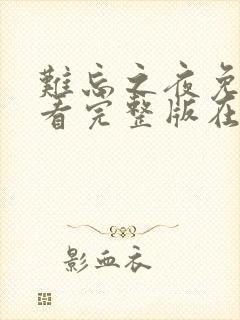 難忘之夜免
看完整版在
影血衣